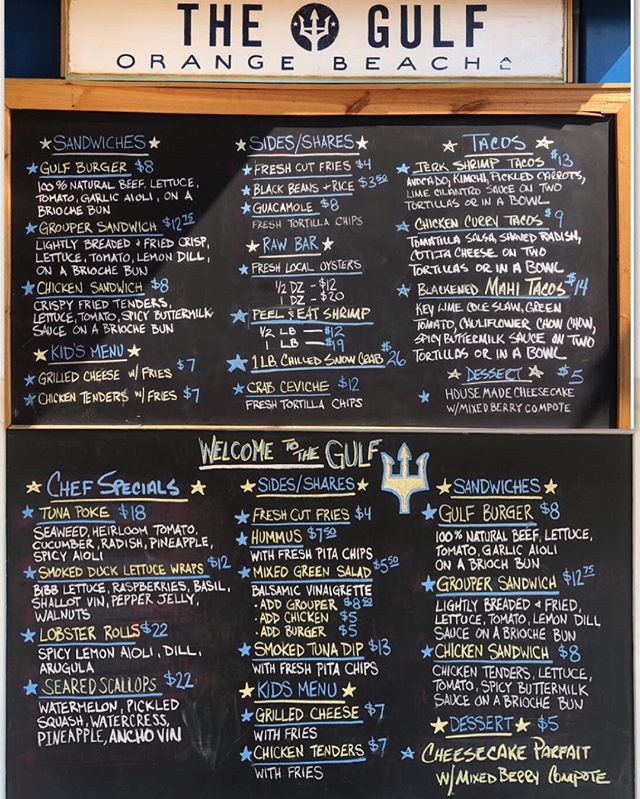 THE GULF
ORANGE BEACH
SANDWICHES
GULF BURGER $8
100% NATURAL BEEF, LETTUCE,
TOMATO, GARLIC AIOLI, ON A
BRIOCHE BUN
GROUPER SANDWICH $12.75
LIGHTLY BREADED + FRIED CRISP,
LETTUCE, TOMATO, LEMON DILL,
ON A BRIOCHE BUN
CHICKEN SANDWICH $8
CRISPY FRIED TENDERS,
LETTUCE, TOMATO, SPICY BUTTERMILK
SAUCE ON A BRIOCHE BUN
KID'S MENU
GRILLED CHEESE W/ FRIES $7
CHICKEN TENDERS W/ FRIES $7
SIDES/SHARES
FRESH CUT FRIES $4
BLACK BEANS + RICE $3.50
GUACAMOLE $8
FRESH TORTILLA CHIPS
RAW BAR
FRESH LOCAL OYSTERS
1/2 DZ - $12
1 DZ - $20
PEEL & EAT SHRIMP
1/2 LB - $12
1 LB - $19
1 LB. CHILLED SNOW CRAB $26
CRAB CEVICHE $12
FRESH TORTILLA CHIPS
TACOS
JERK SHRIMP TACOS $13
AVOCADO, KIMCHI, PICKLED CARROTS,
LIME CILANTRO SAUCE ON TWO
TORTILLAS OR IN A BOWL
CHICKEN CURRY TACOS $9
TOMATILLA SALSA, SHAVED RADISH,
COTIJA CHEESE ON TWO
TORTILLAS OR IN A BOWL
BLACKENED MAHI TACOS $14
KEY LIME COLE SLAW, GREEN
TOMATO, CAULIFLOWER CHOW CHOW,
SPICY BUTTERMILK SAUCE ON TWO
TORTILLAS OR IN A BOWL
DESSERT $5
HOUSE MADE CHEESECAKE
W/ MIXED BERRY COMPOTE
WELCOME TO THE GULF
CHEF SPECIALS
TUNA POKE $18
SEAWEED, HEIRLOOM TOMATO,
CUCUMBER, RADISH, PINEAPPLE,
SPICY AIOLI
SMOKED DUCK LETTUCE WRAPS $12
BIBB LETTUCE, RASPBERRIES, BASIL,
SHALLOT VIN, PEPPER JELLY,
WALNUTS
LOBSTER ROLLS $22
SPICY LEMON AIOLI, DILL,
ARUGULA
SEARED SCALLOPS $22
WATERMELON, PICKLED
SQUASH, WATERCRESS,
PINEAPPLE, ANCHO VIN
SIDES/SHARES
FRESH CUT FRIES $4
HUMMUS $7.50
WITH FRESH PITA CHIPS
MIXED GREEN SALAD $5.50
BALSAMIC VINAIGRETTE
- ADD GROUPER $8.50
- ADD CHICKEN $5
- ADD BURGER $5
SMOKED TUNA DIP $13
WITH FRESH PITA CHIPS
KIDS MENU
GRILLED CHEESE $7
WITH FRIES
CHICKEN TENDERS $7
WITH FRIES
SANDWICHES
GULF BURGER $8
100% NATURAL BEEF, LETTUCE,
TOMATO, GARLIC AIOLI
ON A BRIOCH BUN
GROUPER SANDWICH $12.75
LIGHTLY BREADED + FRIED,
LETTUCE, TOMATO, LEMON DILL
SAUCE ON A BRIOCHE BUN
CHICKEN SANDWICH $8
CHICKEN TENDERS, LETTUCE,
TOMATO, SPICY BUTTERMILK
SAUCE ON A BRIOCHE BUN
DESSERT $5
CHEESECAKE PARFAIT
W/ MIXED BERRY COMPOTE